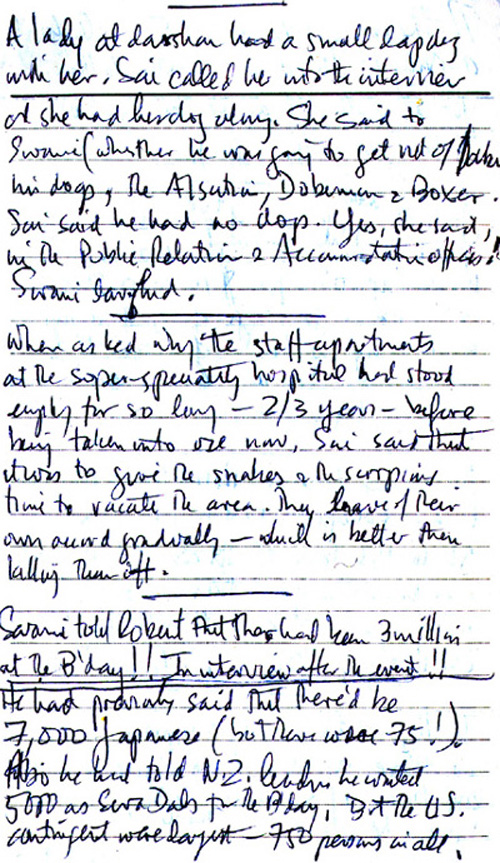 A lady at darshan had a small lapdog
with her. Sai called her into the interview
and she had her dog along. She said to
Swami (whether he was going to get rid of
his dogs, the Alsatian, Doberman & Boxer.
Sai said he had no dogs. Yes, she said,
in the Public Relation & Accommodation offices!!
Swami laughed.
When asked why the staff-apartments
at the super-speciality hospital had stood
empty for so long – 2/3 years – before
being taken into use now, Sai said that
it was to give the snakes & the scorpions
time to vacate the area. They leave of their
own accord gradually – which is better than
killing them off.
Swami told Robert that there had been 3 million
at the B'day!! In interview after the event!!
He had previously said that there'd be
7,000 Japanese (but there were 75!).
Also he had told N.Z. leaders he wanted
5000 as Seva Dals for the B'day, But the U.S.
contingent were largest – 750 persons in all.